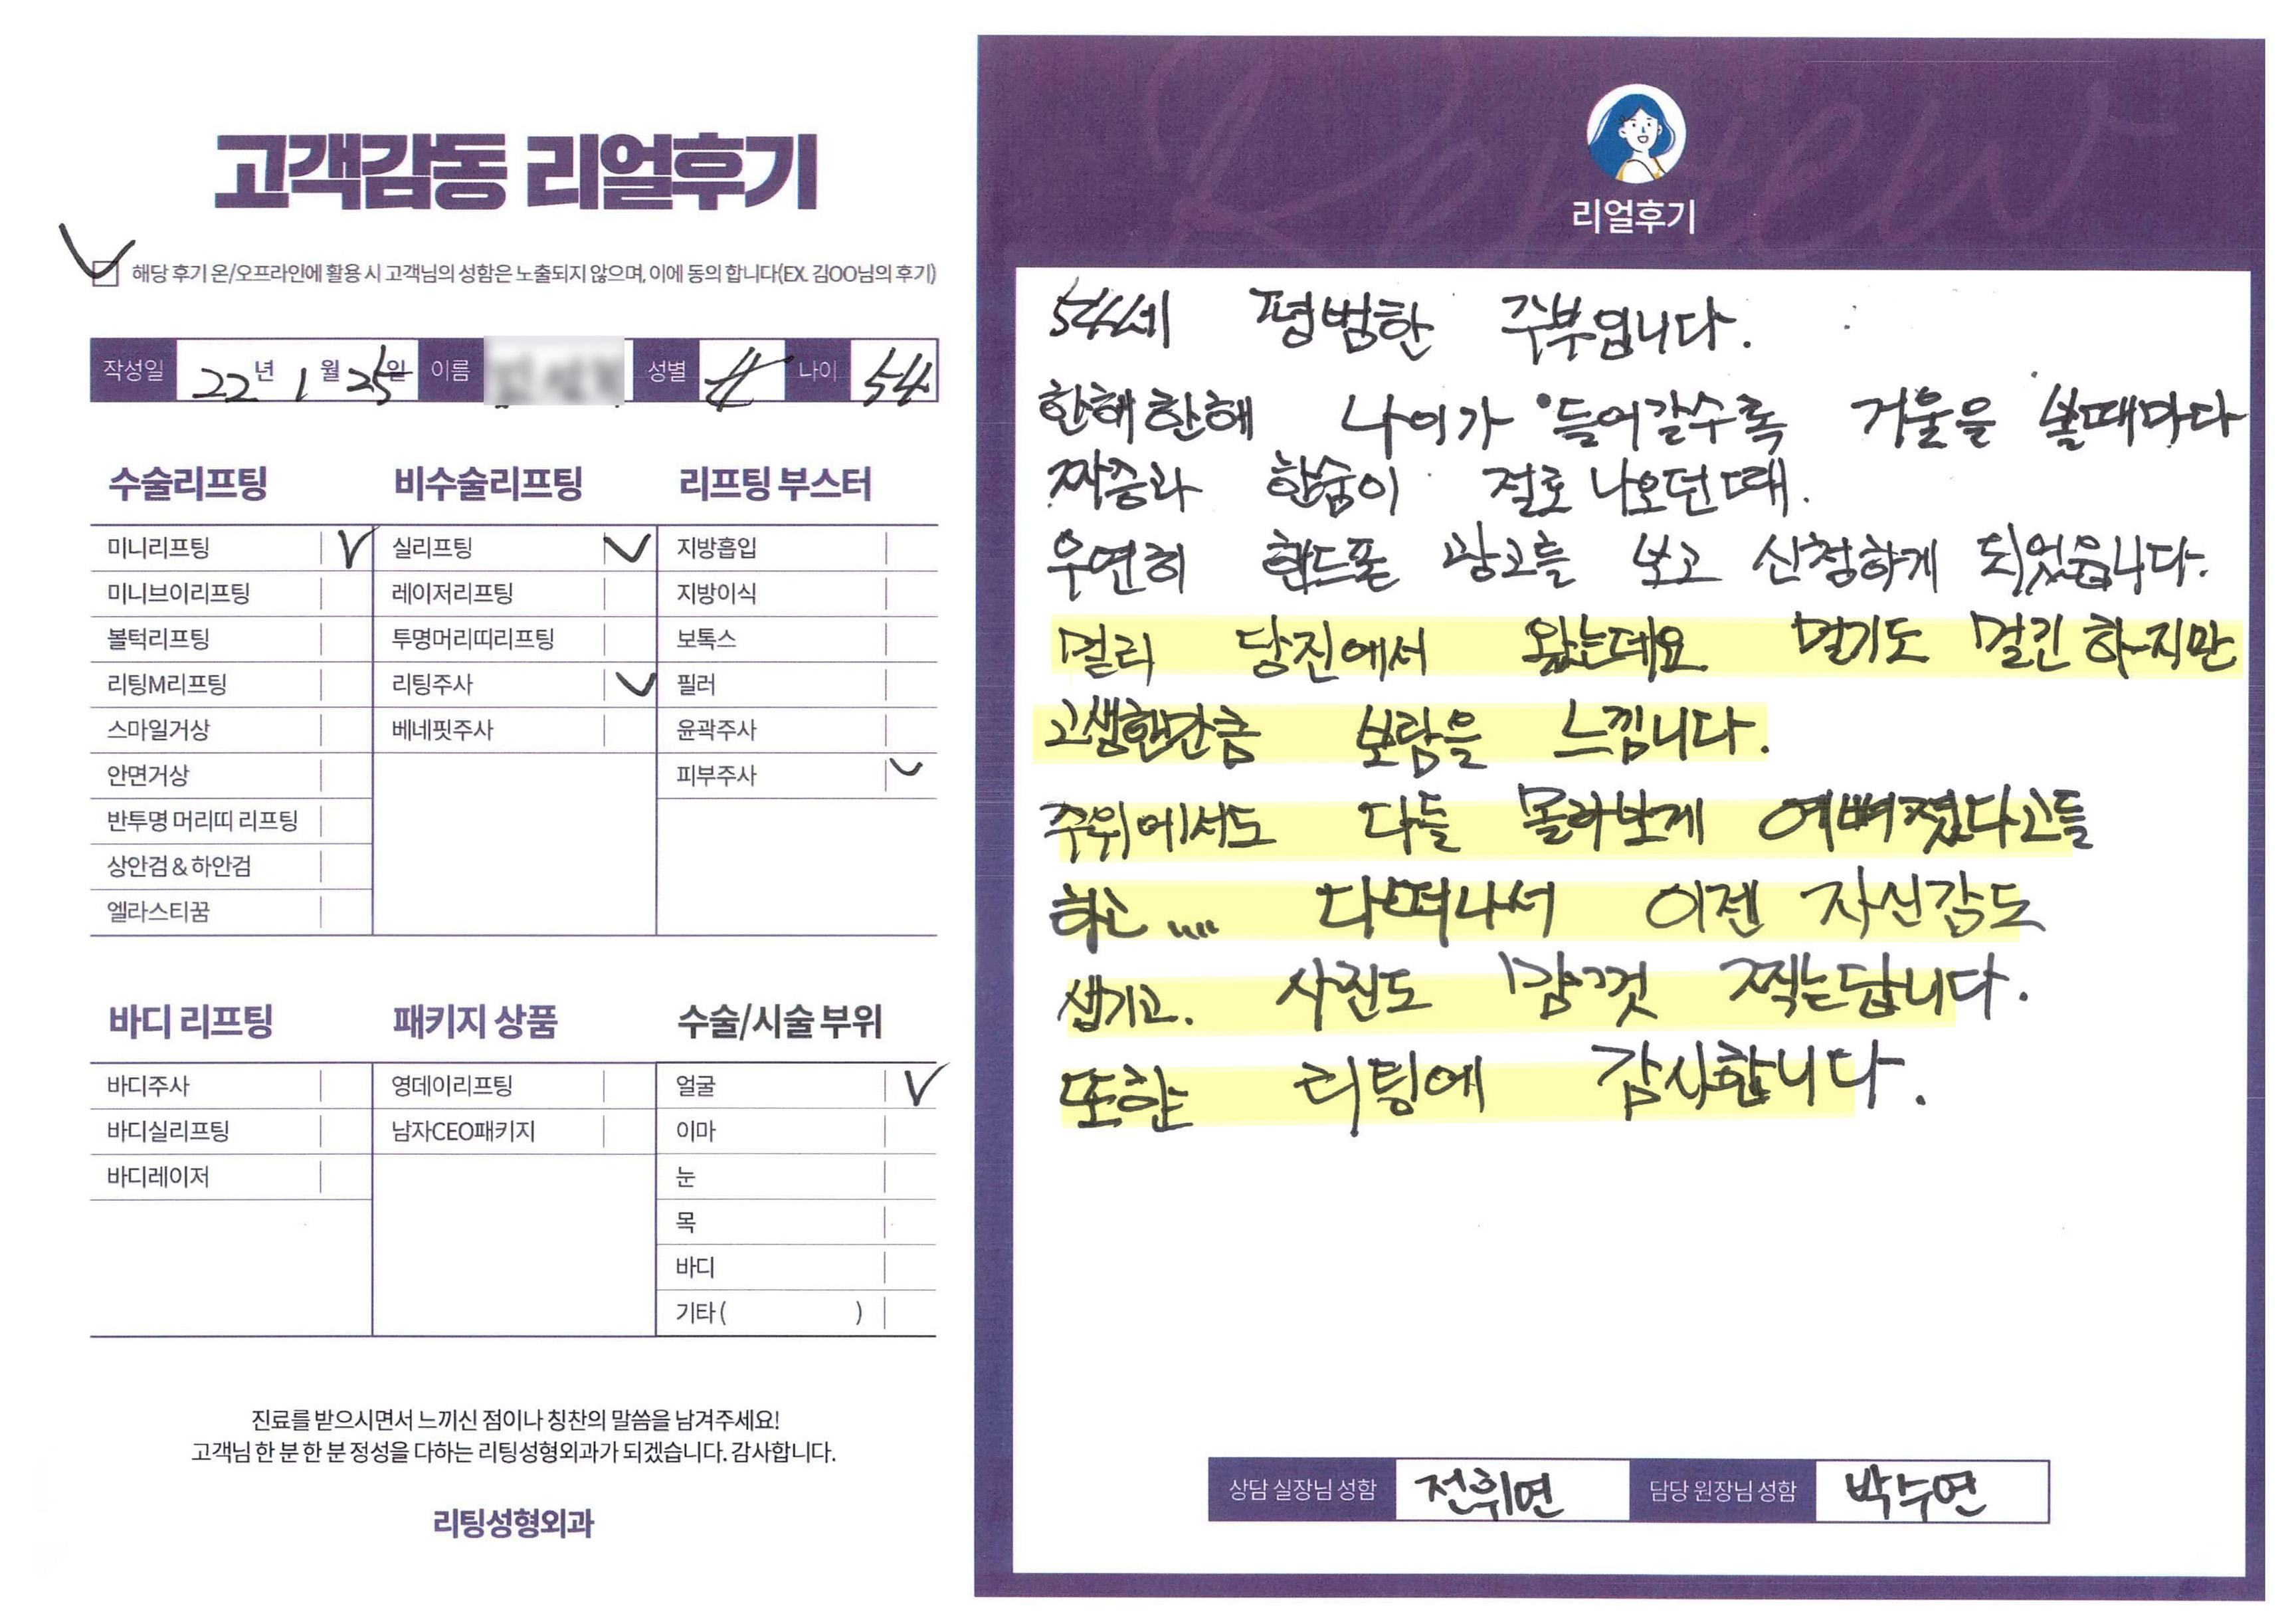 고객감동 리얼후기
해당 후기 온/오프라인에 활용 시 고객님의 성함은 노출되지 않으며, 이에 동의 합니다(EX. 김OO님의 후기)
작성일 22년 1월 25일 이름 성별 나이 54
수술리프팅 비수술리프팅 리프팅 부스터
미니리프팅 실리프팅 지방흡입
미니브이리프팅 레이저리프팅 지방이식
볼턱리프팅 투명머리띠리프팅 보톡스
리팅M리프팅 리팅주사 필러
스마일거상 베네핏주사 윤곽주사
안면거상 피부주사
반투명 머리띠 리프팅
상안검 & 하안검
엘라스티꿈
바디 리프팅 패키지 상품 수술/시술 부위
바디주사 영데이리프팅 얼굴
바디실리프팅 남자CEO패키지 이마
바디레이저 눈
목
바디
기타 ( )
진료를 받으시면서 느끼신 점이나 칭찬의 말씀을 남겨주세요!
고객님 한 분 한 분 정성을 다하는 리팅성형외과가 되겠습니다. 감사합니다.
리팅성형외과
Review
리얼후기
54세 평범한 주부입니다.
한해한해 나이가 들어갈수록 거울을 볼때마다
짜증과 한숨이 절로 나오던때.
우연히 핸드폰 광고를 보고 신청하게 되었읍니다.
멀리 당진에서 왔는데요 멀기도 멀긴 하지만
고생한만큼 보람을 느낍니다.
주위에서도 다들 몰라보게 예뻐졌다고들
하고.... 다떠나서 이젠 자신감도
생기고. 사진도 맘껏 찍는답니다.
또한 리팅에 감사합니다.
상담 실장님 성함 전휘연 담당 원장님 성함 박수연